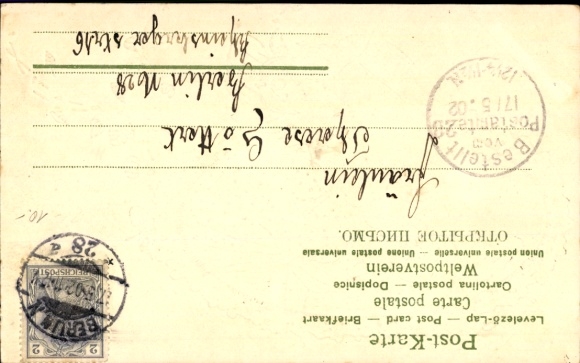 Post-Karte
Levelező-Lap — Post card — Briefkaart
Carte postale
Cartolina postale — Dopisnice
Weltpostverein
Union postale universelle — Unione postale universale
ОТКРЫТОЕ ПИСЬМО.
2
REICHSPOST
BERLIN N
28 a
Bestellt
vom
Postamte 28
17/5.02
Fräulein
Therese Göttert
Berlin N 28
Rheinsberger Str. 16
10.-